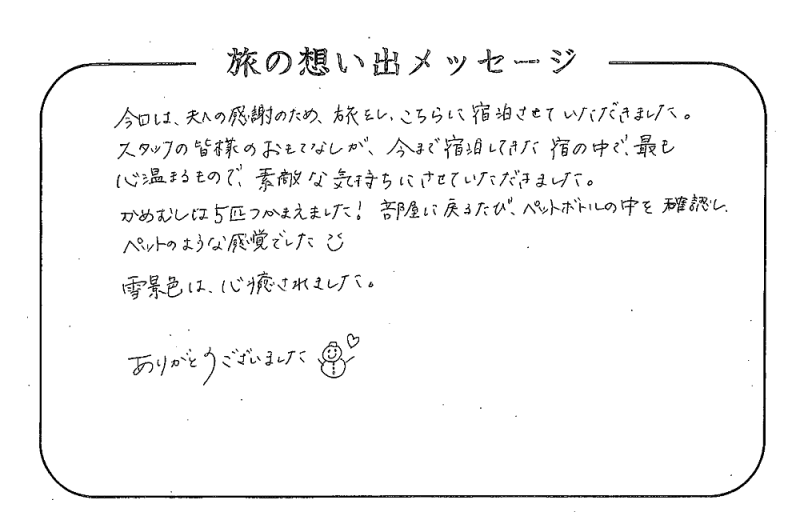 旅の想い出メッセージ
今日は、夫への感謝のため、旅をし、こちらに宿泊させていただきました。
スタッフの皆様のおもてなしが、今まで宿泊してきた宿の中で、最も
心温まるもので、素敵な気持ちにさせていただきました。
かめむしは5匹つかまえました! 部屋に戻るたび、ペットボトルの中を確認し、
ペットのような感覚でした
雪景色は、心癒されました。
ありがとうございました